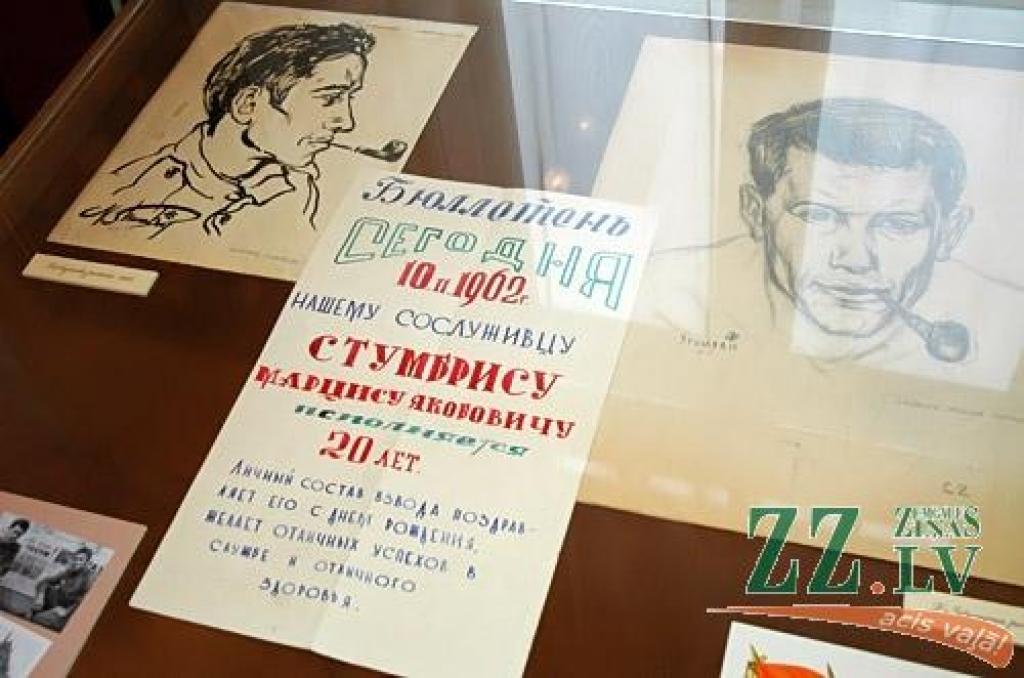 Бюллотень
СЕГОДНЯ
10 II 1962г
НАШЕМУ СОСЛУЖИВЦУ
СТУМБРИСУ
МАРЦИСУ ЯКОБОВИЧУ
исполняется
20 ЛЕТ.
Личный состав взвода поздрав-
ляет его с днем рождения,
желает отличных успехов в
службе и отличного
здоровья.
ZEMGALES
ZIŅAS
ZZ.LV
acis vaļā!